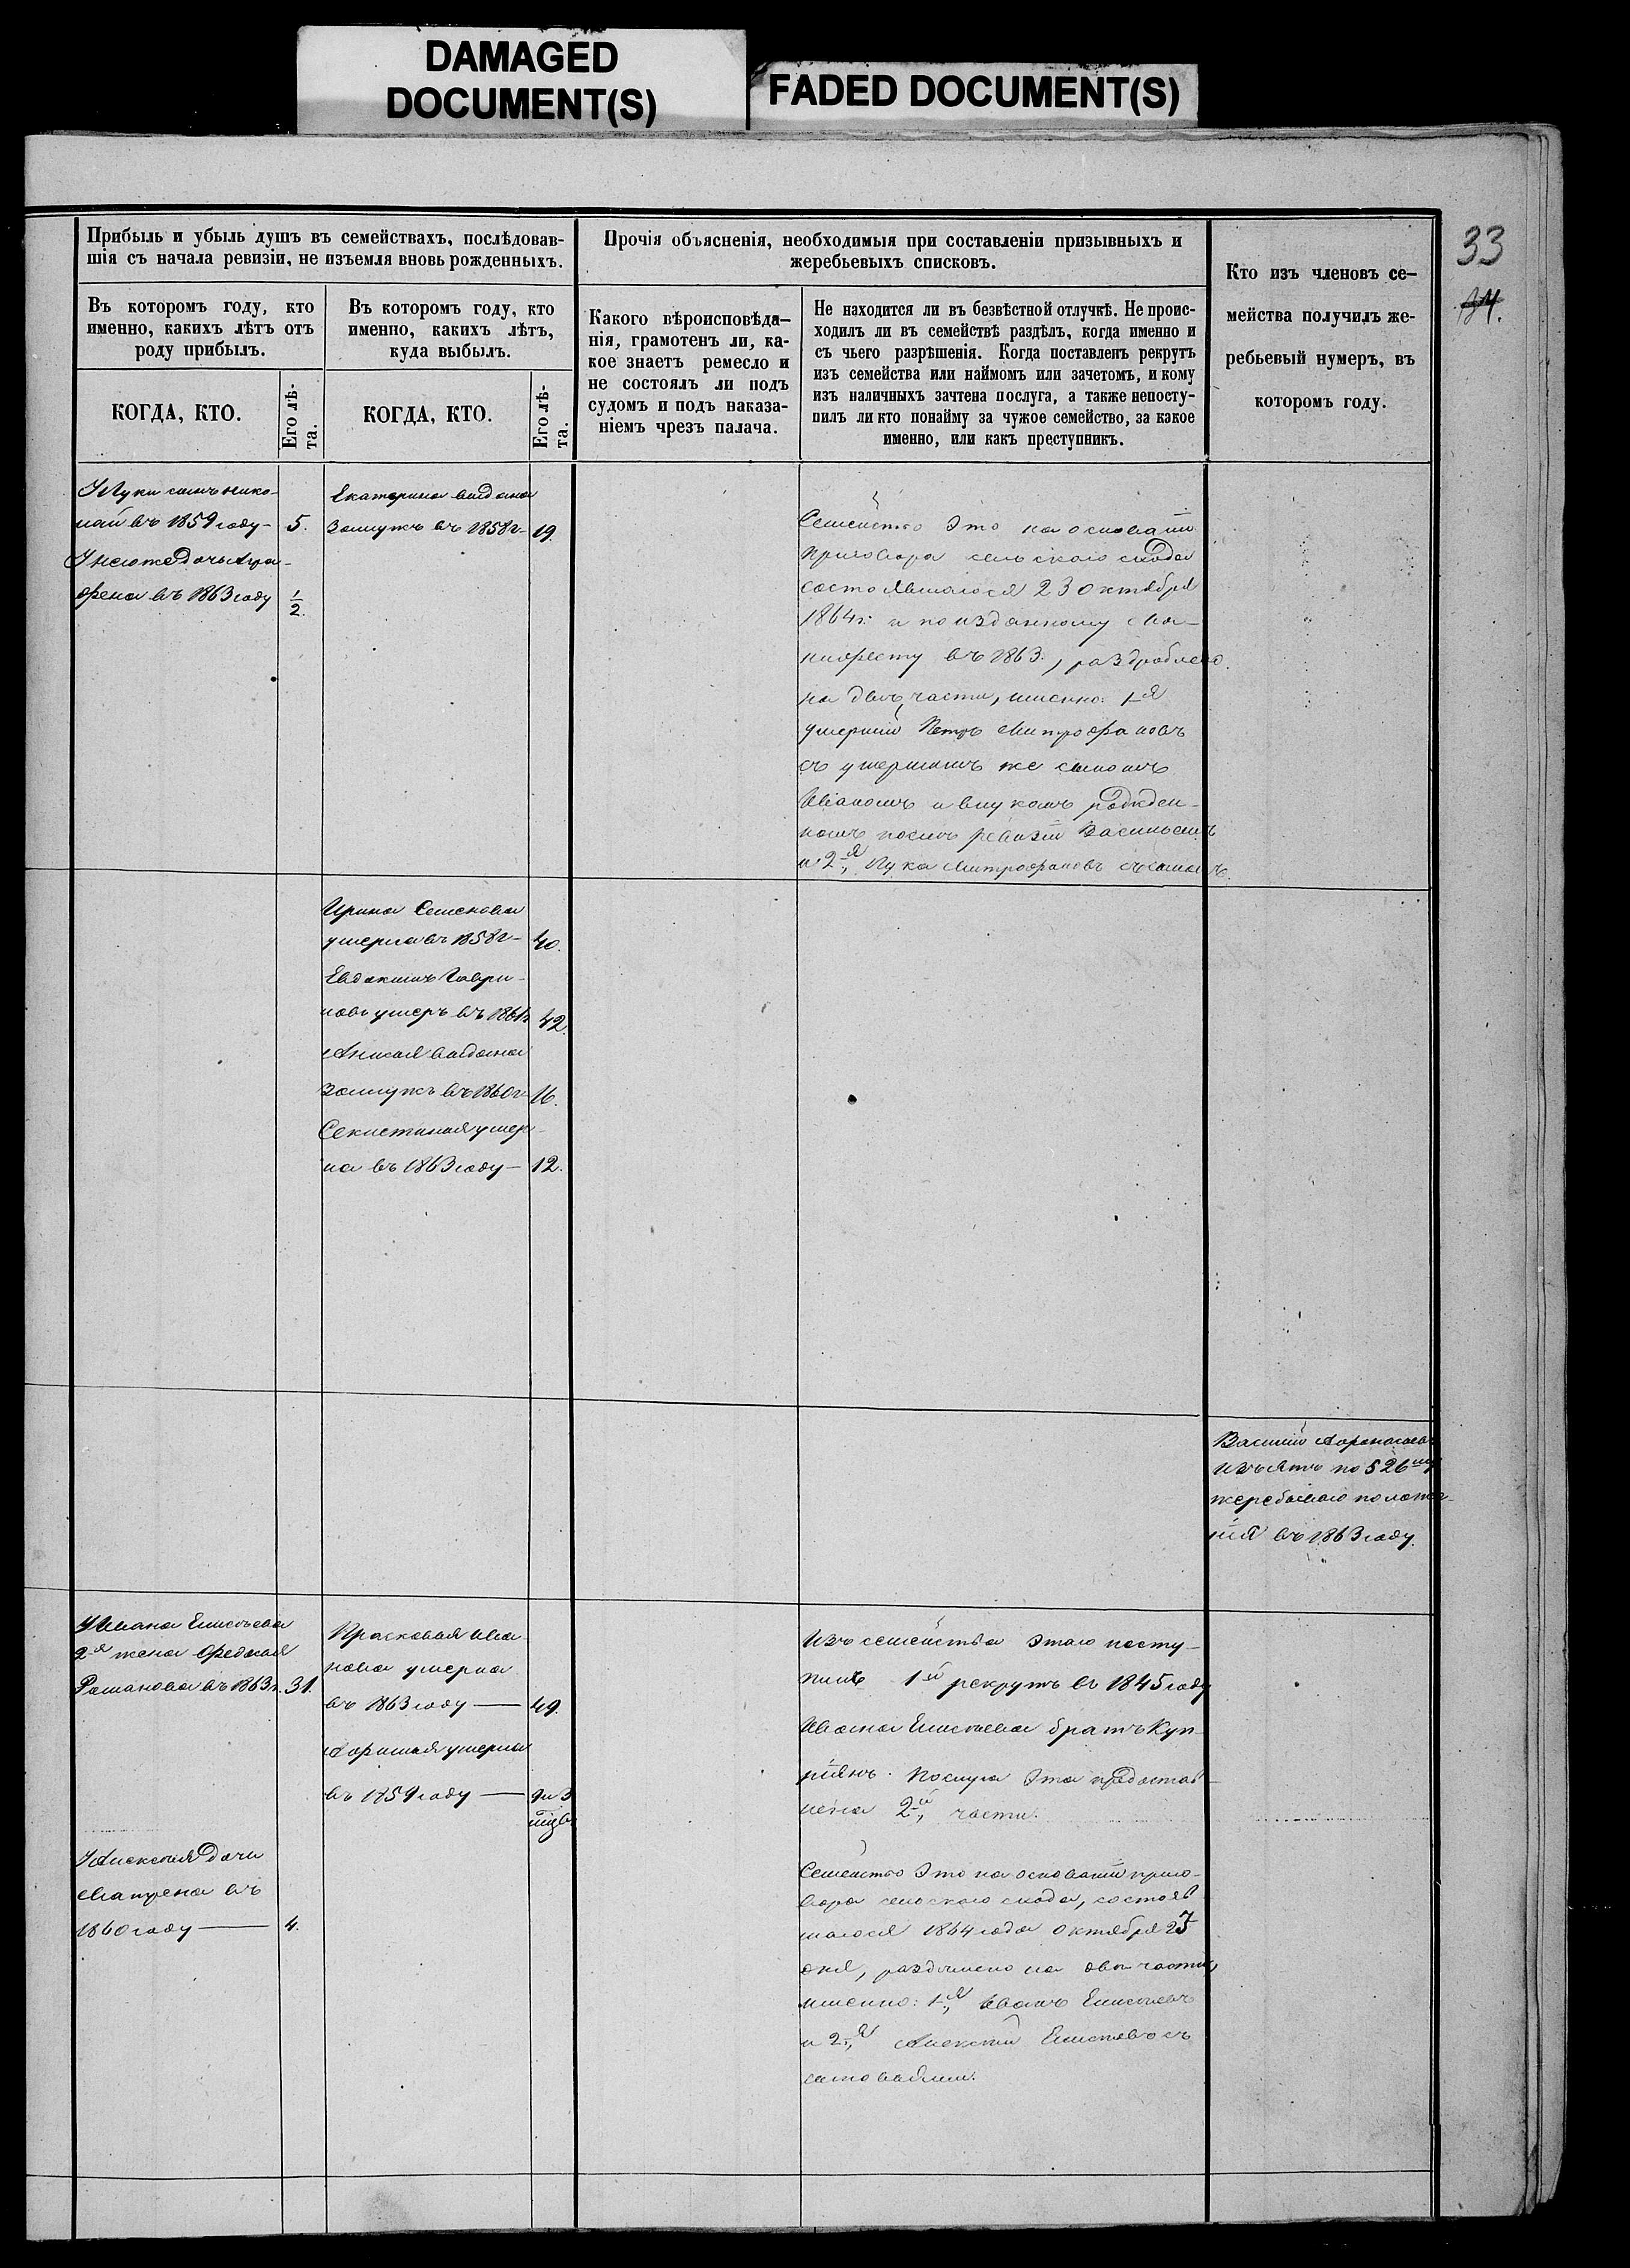 DAMAGED
DOCUMENT(S)
FADED DOCUMENT(S)
33
34.
Прибыль и убыль душъ въ семействахъ, послѣдовав-
шія съ начала ревизіи, не изъемля вновь рожденныхъ.
Прочія объясненія, необходимыя при составленіи призывныхъ и
жеребьевыхъ списковъ.
Кто изъ членовъ се-
мейства получилъ же-
ребьевый нумеръ, въ
которомъ году.
Въ которомъ году, кто
именно, какихъ лѣтъ отъ
роду прибылъ.
Въ которомъ году, кто
именно, какихъ лѣтъ,
куда выбылъ.
Какого вѣроисповѣда-
нія, грамотенъ ли, ка-
кое знаетъ ремесло и
не состоялъ ли подъ
судомъ и подъ наказа-
ніемъ чрезъ палача.
Не находится ли въ безвѣстной отлучкѣ. Не проис-
ходилъ ли въ семействѣ раздѣлъ, когда именно и
съ чьего разрѣшенія. Когда поставленъ рекрутъ
изъ семейства или наймомъ или зачетомъ, и кому
изъ наличныхъ зачтена послуга, а также непосту-
пилъ ли кто понайму за чужое семейство, за какое
именно, или какъ преступникъ.
КОГДА, КТО.
Его лѣ-
та.
КОГДА, КТО.
Его лѣ-
та.
У Луки сынъ Нико-
лай въ 1859 году - 5.
У негоже дочь Агра-
фена въ 1863 году 1/2.
Екатерина выдана
замужъ въ 1858 г - 19.
Семейство это на основаніи
приговора сельскаго схода
состоявшагося 23 октября
1864 г. и по изданному Ма-
нифесту въ 1863., раздроблено
на двѣ части, именно: 1-я
умершій Петръ Митрофановъ
съ умершимъ же сыномъ
Иваномъ и внукомъ рожден-
нымъ послѣ ревизіи Васильемъ
и 2-я, Лука Митрофановъ съ сыномъ.
Ирина Семенова
умерла въ 1858 г - 40.
Евдокимъ Гаври-
ловъ умеръ въ 1861 г 42.
Анисья выдана
замужъ въ 1860 г - 16.
умер-
ла въ 1863 году - 12.
Василій Афанасьевъ
изъятъ по 526
жеребьеваго положе-
нія въ 1863 году.
У Ивана Елисѣева
2-я жена Федосья
Романова въ 1863 г. 31.
Прасковья Ива-
нова умерла
въ 1863 году — 49.
умерла
въ 1859 году — 9 и 3
мцв.
Изъ семейства этаго посту-
пилъ 1-й рекрутъ въ 1845 году
Ивана Елисѣева братъ Куп-
ріянъ. Послуга эта предостав-
лена 2-й, части.
У Алексѣя дочь
Матрена въ
1860 году — 4.
Семейство это на основаніи приго-
вора сельскаго схода, состояв-
шагося 1864 года октября 23
дня, раздѣлено на двѣ части,
именно: 1-я, Иванъ Елисѣевъ
и 2-я, Алексѣй Елисѣевъ съ
сыновьями.